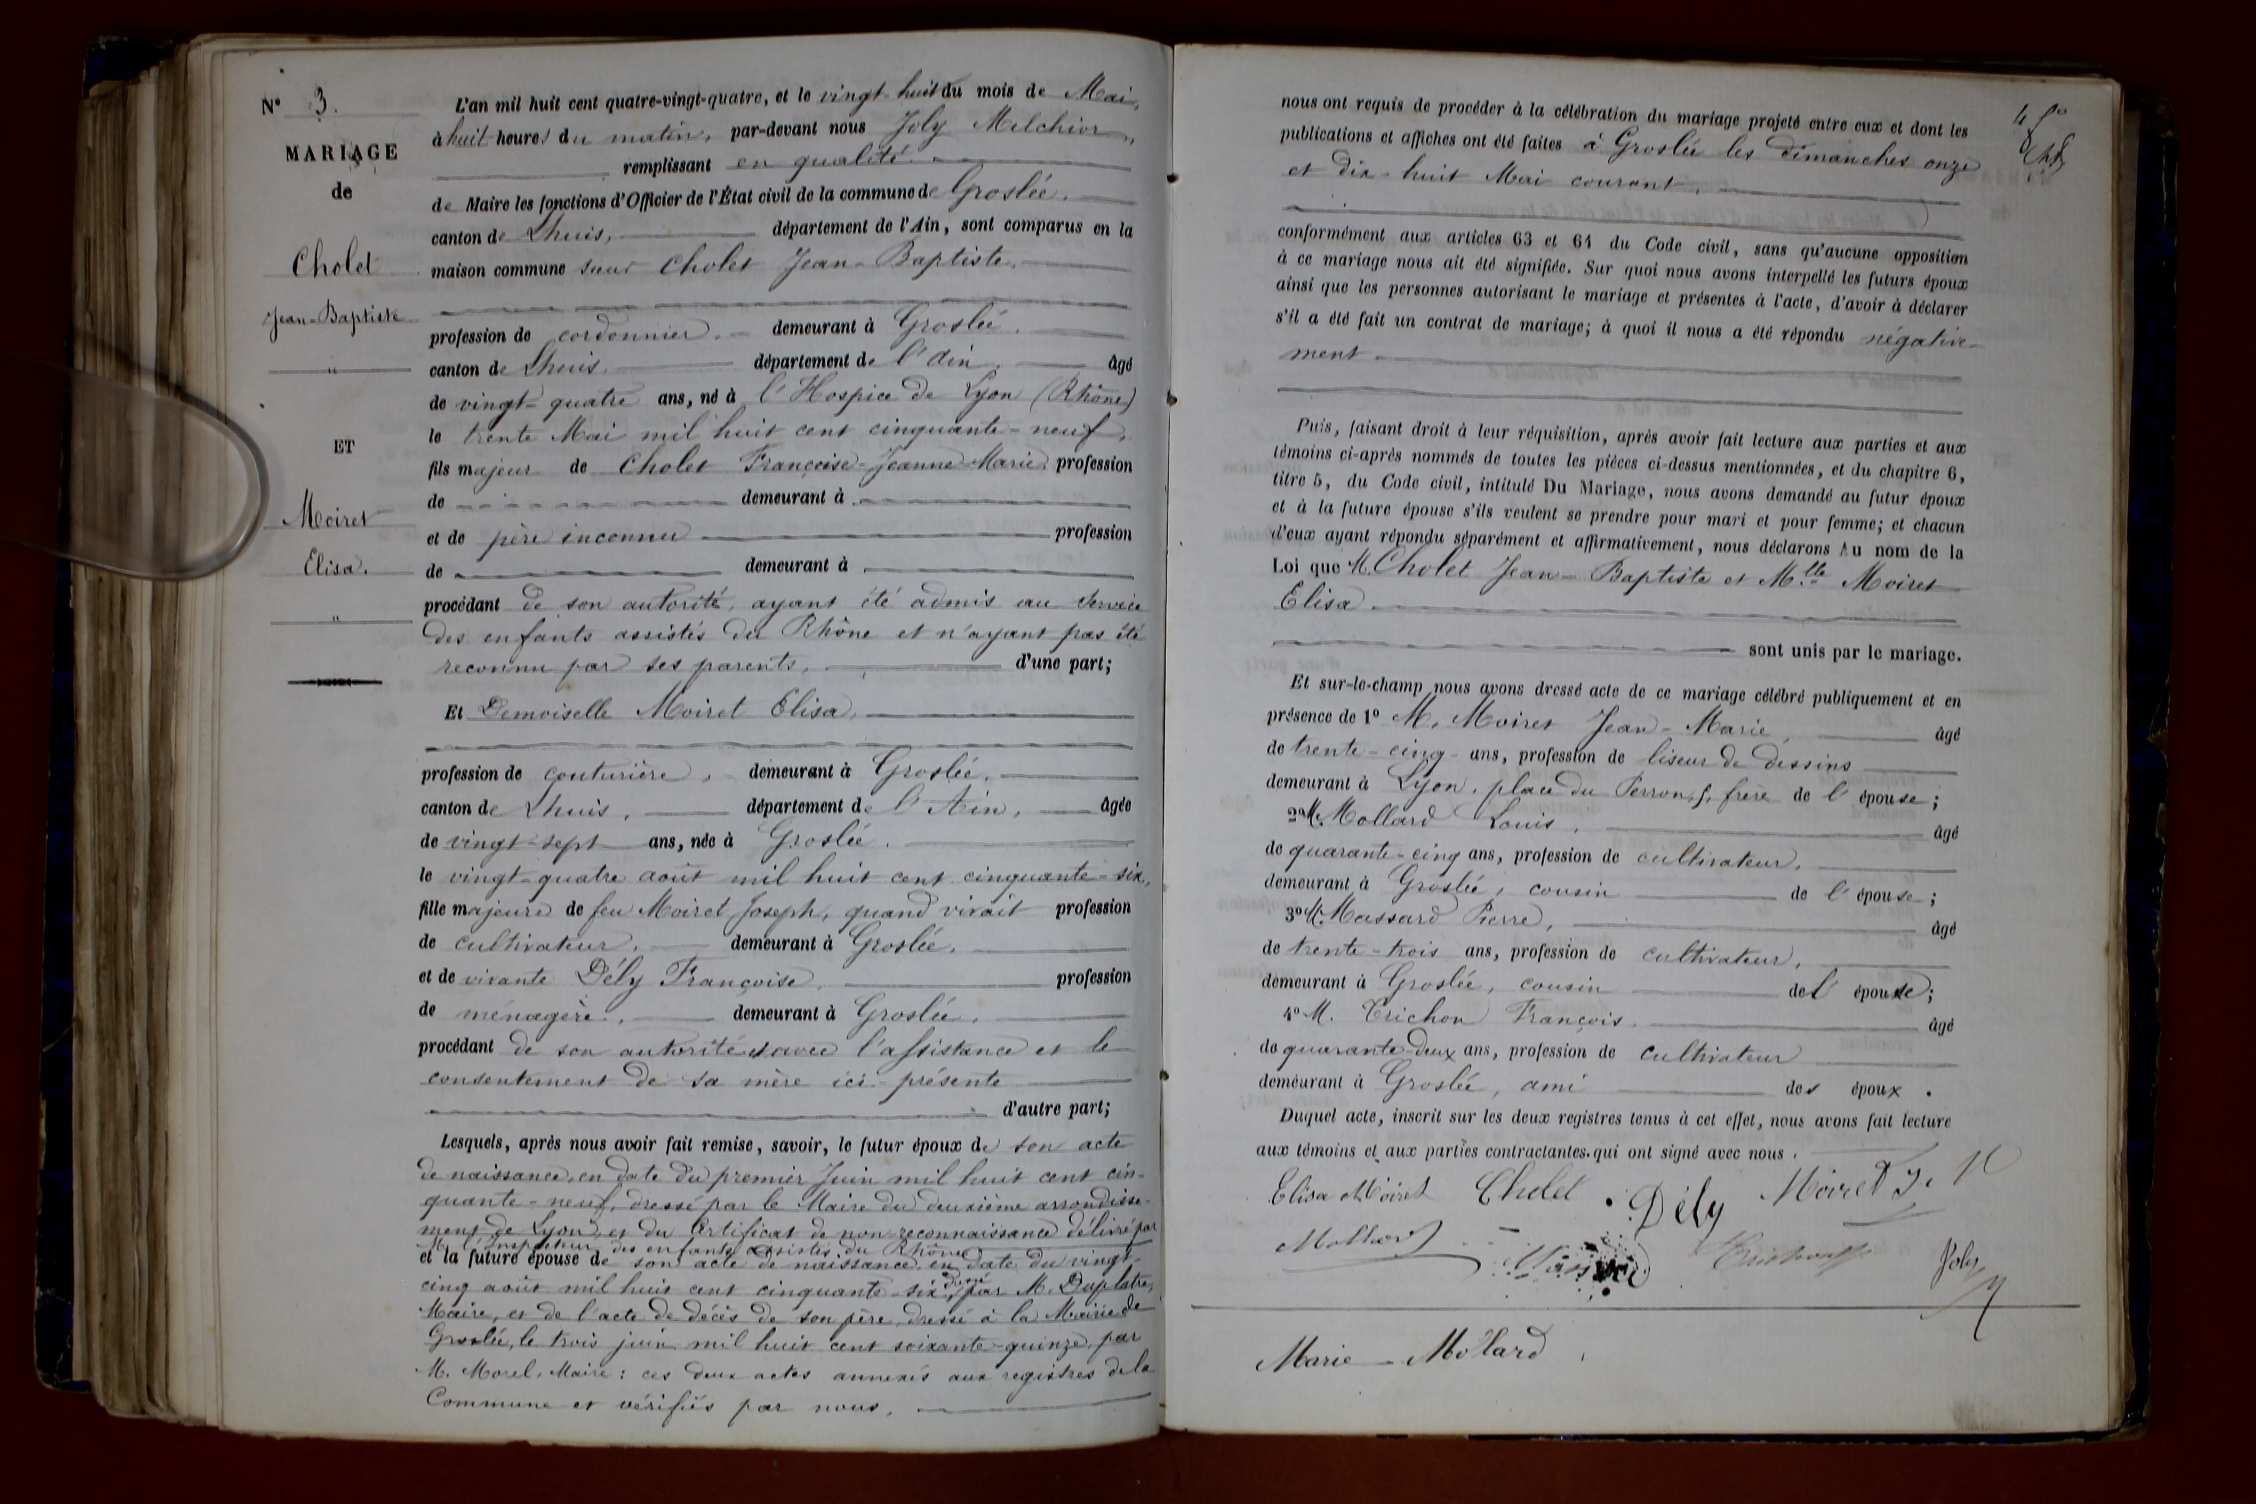 N° 3.
MARIAGE
de
Cholet
Jean-Baptiste
"
ET
Moiret
Elisa.
"
L'an mil huit cent quatre-vingt-quatre, et le vingt-huit du mois de Mai,
à huit heures du matin, par-devant nous Joly Melchior,
remplissant en qualité
de Maire les fonctions d'Officier de l'État civil de la commune de Groslée.
canton de Lhuis, département de l'Ain, sont comparus en la
maison commune sieur Cholet Jean-Baptiste,
profession de cordonnier. demeurant à Groslée.
canton de Lhuis. département de l'Ain. âgé
de vingt-quatre ans, né à l'Hospice de Lyon (Rhône)
le trente Mai mil huit cent cinquante-neuf,
fils majeur de Cholet Françoise-Jeanne-Marie, profession
de demeurant à
et de père inconnu profession
de demeurant à
procédant de son autorité, ayant été admis au service
des enfants assistés du Rhône et n'ayant pas été
reconnu par ses parents, d'une part;
Et Demoiselle Moiret Elisa,
profession de couturière, demeurant à Groslée.
canton de Lhuis, département de l'Ain, âgée
de vingt-sept ans, née à Groslée.
le vingt-quatre août mil huit cent cinquante-six,
fille majeure de feu Moiret Joseph, quand vivait profession
de cultivateur, demeurant à Groslée.
et de vivante Dély Françoise, profession
de ménagère, demeurant à Groslée.
procédant de son autorité et avec l'assistance et le
consentement de sa mère ici-présente
d'autre part;
Lesquels, après nous avoir fait remise, savoir, le futur époux de son acte
de naissance, en date du premier Juin mil huit cent cin-
quante-neuf, dressé par le Maire du deuxième arrondisse-
ment de Lyon, et du Certificat de non-reconnaissance délivré par
M. l'Inspecteur des enfants assistés du Rhône
et la future épouse de son acte de naissance en date du vingt-
cinq août mil huit cent cinquante-six, dressé par M. Duplatre,
Maire, et de l'acte de décès de son père, dressé à la Mairie de
Groslée, le trois juin mil huit cent soixante-quinze, par
M. Morel, Maire: ces deux actes annexés aux registres de la
Commune et vérifiés par nous.
nous ont requis de procéder à la célébration du mariage projeté entre eux et dont les
publications et affiches ont été faites à Groslée les dimanches onze
et dix-huit Mai courant,
conformément aux articles 63 et 64 du Code civil, sans qu'aucune opposition
à ce mariage nous ait été signifiée. Sur quoi nous avons interpellé les futurs époux
ainsi que les personnes autorisant le mariage et présentes à l'acte, d'avoir à déclarer
s'il a été fait un contrat de mariage; à quoi il nous a été répondu négative-
ment
Puis, faisant droit à leur réquisition, après avoir fait lecture aux parties et aux
témoins ci-après nommés de toutes les pièces ci-dessus mentionnées, et du chapitre 6,
titre 5, du Code civil, intitulé Du Mariage, nous avons demandé au futur époux
et à la future épouse s'ils veulent se prendre pour mari et pour femme; et chacun
d'eux ayant répondu séparément et affirmativement, nous déclarons Au nom de la
Loi que M. Cholet Jean-Baptiste et Mlle Moiret
Elisa.
sont unis par le mariage.
Et sur-le-champ nous avons dressé acte de ce mariage célébré publiquement et en
présence de 1° M. Moiret Jean-Marie, âgé
de trente-cinq ans, profession de liseur de dessins
demeurant à Lyon, place du Perron, 5, frère de l'épouse;
2° M. Mollard Louis, âgé
de quarante-cinq ans, profession de cultivateur,
demeurant à Groslée, cousin de l'épouse;
3° M. Massard Pierre, âgé
de trente-trois ans, profession de cultivateur,
demeurant à Groslée, cousin de l'épouse;
4° M. Trichon François. âgé
de quarante-deux ans, profession de cultivateur
demeurant à Groslée, ami des époux.
Duquel acte, inscrit sur les deux registres tenus à cet effet, nous avons fait lecture
aux témoins et aux parties contractantes. qui ont signé avec nous.
Elisa Moiret Cholet Dély Moiret J. M
Mollard Massard Joly
Marie Mollard